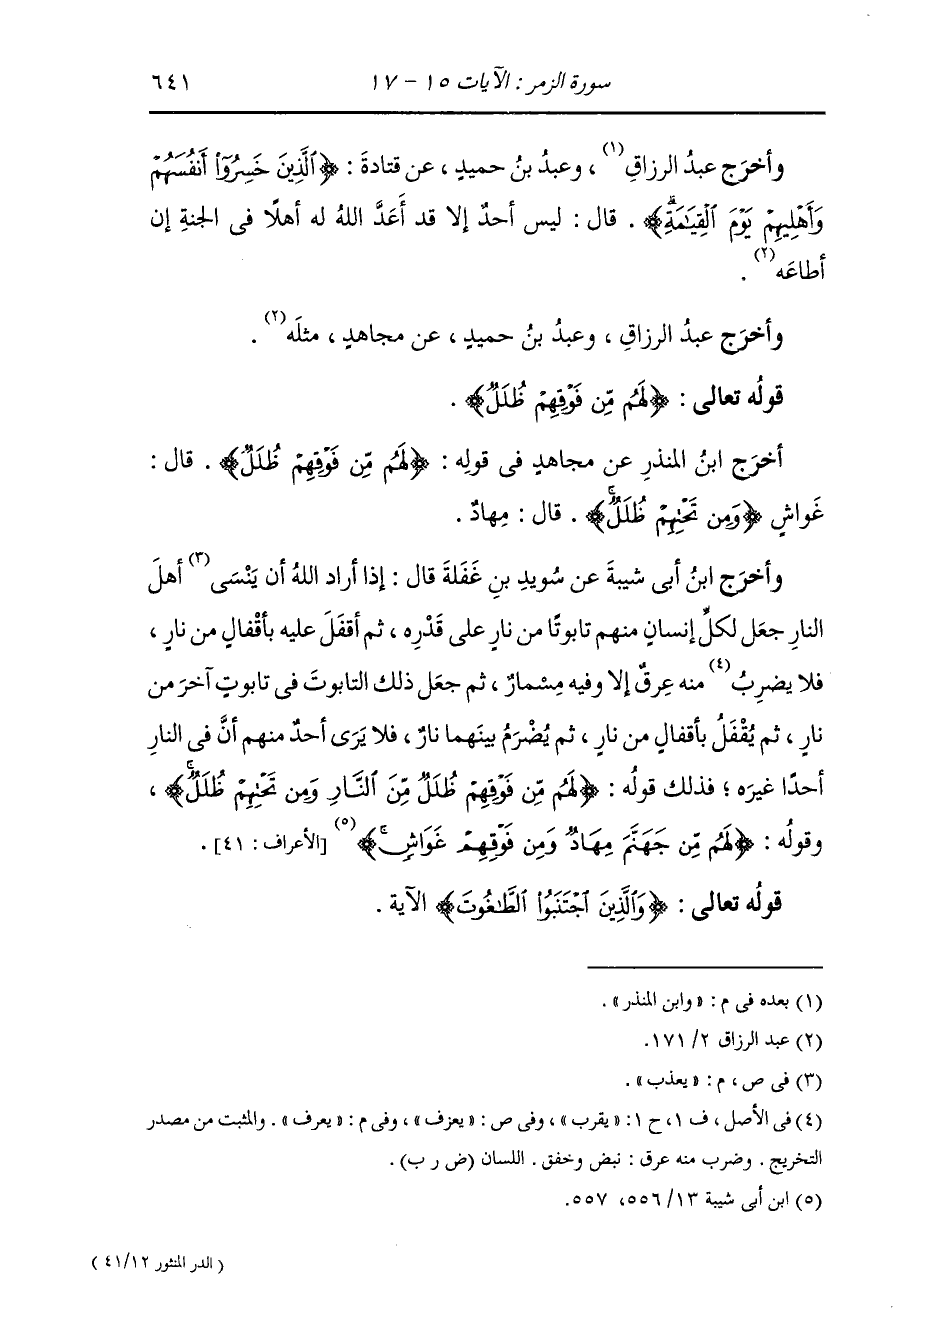 سورة الزمر : الآيات ١٥ - ١٧ ٦٤١
وأخرَج عبدُ الرزاقِ(١) ، وعبدُ بنُ حميدٍ ، عن قتادةَ : ﴿ٱلَّذِينَ خَسِرُوٓاْ أَنفُسَهُمۡ
وَأَهۡلِيهِمۡ يَوۡمَ ٱلۡقِيَٰمَةِۗ﴾ . قال : ليس أحدٌ إلا قد أَعَدَّ اللهُ له أهلًا فى الجنةِ إن
أطاعَه(٢) .
وأخرَج عبدُ الرزاقِ ، وعبدُ بنُ حميدٍ ، عن مجاهدٍ ، مثلَه(٢) .
قولُه تعالى : ﴿لَهُم مِّن فَوۡقِهِمۡ ظُلَلٌ﴾ .
أخرَج ابنُ المنذرِ عن مجاهدٍ فى قولِه : ﴿لَهُم مِّن فَوۡقِهِمۡ ظُلَلٌ﴾ . قال :
غَواشٍ ﴿وَمِن تَحۡتِهِمۡ ظُلَلٌۚ﴾ . قال : مِهادٌ .
وأخرَج ابنُ أبى شيبةَ عن سُويدِ بنِ غَفَلةَ قال : إذا أراد اللهُ أن يَنْسَى(٣) أهلَ
النارِ جعَل لكلِّ إنسانٍ منهم تابوتًا من نارٍ على قَدْرِه ، ثم أقفَلَ عليه بأقْفالٍ من نارٍ ،
فلا يضرِبُ(٤) منه عِرقٌ إلا وفيه مِسْمارٌ ، ثم جعَل ذلك التابوتَ فى تابوتٍ آخرَ من
نارٍ ، ثم يُقْفَلُ بأقفالٍ من نارٍ ، ثم يُضْرَمُ بينَهما نارٌ ، فلا يَرَى أحدٌ منهم أنَّ فى النارِ
أحدًا غيرَه ؛ فذلك قولُه : ﴿لَهُم مِّن فَوۡقِهِمۡ ظُلَلٌ مِّنَ ٱلنَّارِ وَمِن تَحۡتِهِمۡ ظُلَلٌۚ﴾ ،
وقولُه : ﴿لَهُم مِّن جَهَنَّمَ مِهَادٌ وَمِن فَوۡقِهِمۡ غَوَاشٍۚ﴾(٥) [الأعراف : ٤١] .
قولُه تعالى : ﴿وَٱلَّذِينَ ٱجۡتَنَبُواْ ٱلطَّٰغُوتَ﴾ الآية .
(١) بعده فى م : « وابن المنذر » .
(٢) عبد الرزاق ٢/ ١٧١.
(٣) فى ص ، م : « يعذب » .
(٤) فى الأصل ، ف ١، ح ١: « يقرب » ، وفى ص : « يعزف » ، وفى م : « يعرف » . والمثبت من مصدر
التخريج . وضرب منه عرق : نبض وخفق . اللسان (ض ر ب) .
(٥) ابن أبى شيبة ١٣/ ٥٥٦، ٥٥٧.
( الدر المنثور ٤١/١٢ )